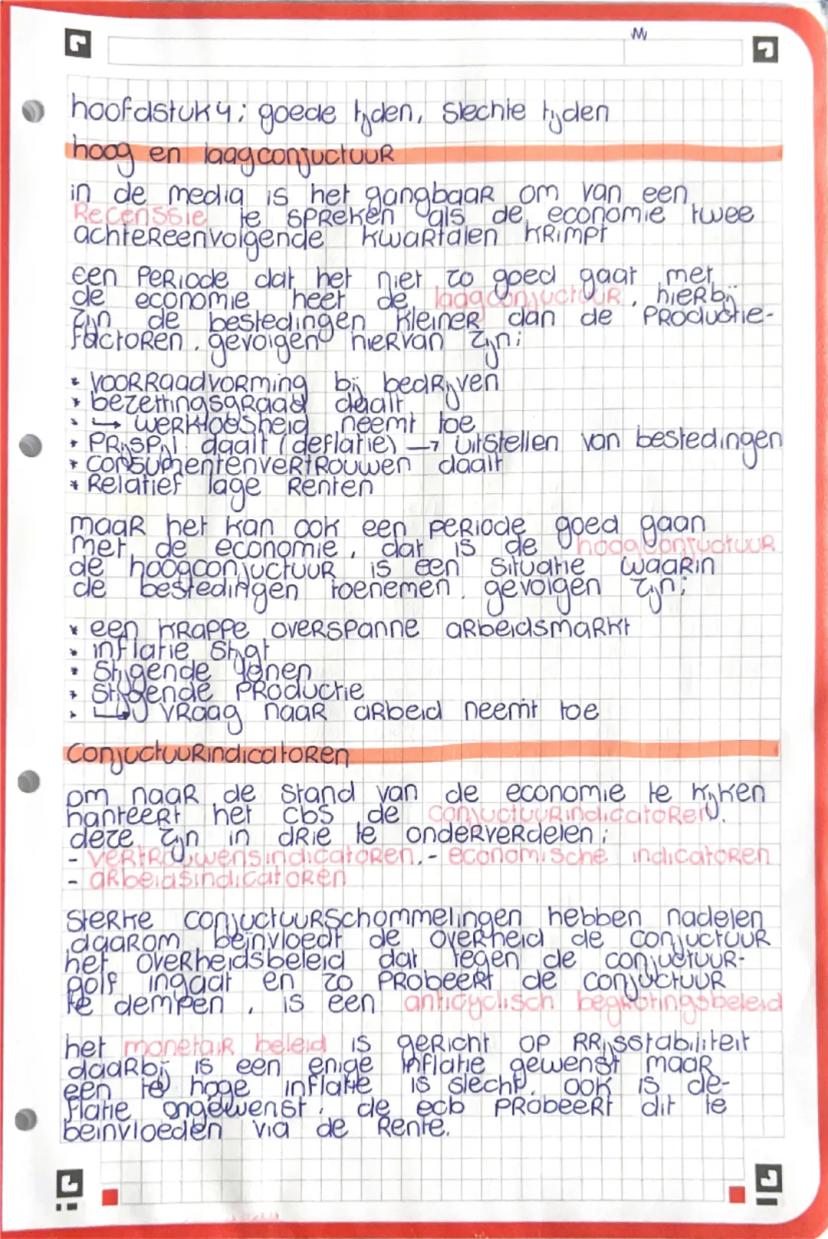 M
hoofdstuk 4; goede tijden, slechte tijden
hoog en laagconjuctuur
in de media is het gangbaar om van een
Recenssie te spreken als de economie twee
achtereenvolgende kwartalen krimpt
een periode dat het niet zo goed gaat met
de economie heet de laagconjuctuur, hierbij
zijn de bestedingen kleiner dan de productie-
factoren. gevolgen hiervan zijn;
* voorraadvorming bij bedrijven
* bezettingsgraad daalt
* ↳ werkloosheid neemt toe
* prijspijl daalt (deflatie) → uitstellen van bestedingen
* consumentenvertrouwen daalt
* Relatief lage renten
maar het kan ook een periode goed gaan
met de economie, dat is de hoogconjuctuur
de hoogconjuctuur is een situatie waarin
de bestedingen toenemen. gevolgen zijn;
* een krappe overspanne arbeidsmarkt
* inflatie stijgt
* stijgende lonen
* stijgende productie
* ↳ vraag naar arbeid neemt toe
conjuctuurindicatoren
om naar de stand van de economie te kijken
hanteert het cbs de conjuctuurindicatoren.
deze zijn in drie te onderverdelen;
- vertrouwensindicatoren, - economische indicatoren
- arbeidsindicatoren
sterke conjuctuurschommelingen hebben nadelen
daarom beinvloedt de overheid de conjuctuur
het overheidsbeleid dat tegen de conjuctuur-
golf ingaat en zo probeert de conjuctuur
te dempen, is een anticyclisch begrotingsbeleid
het monetair beleid is gericht op prijsstabiliteit
daarbij is een enige inflatie gewenst maar
een te hoge inflatie is slecht. ook is de-
flatie ongewenst. de ecb probeert dit te
beinvloeden via de rente.